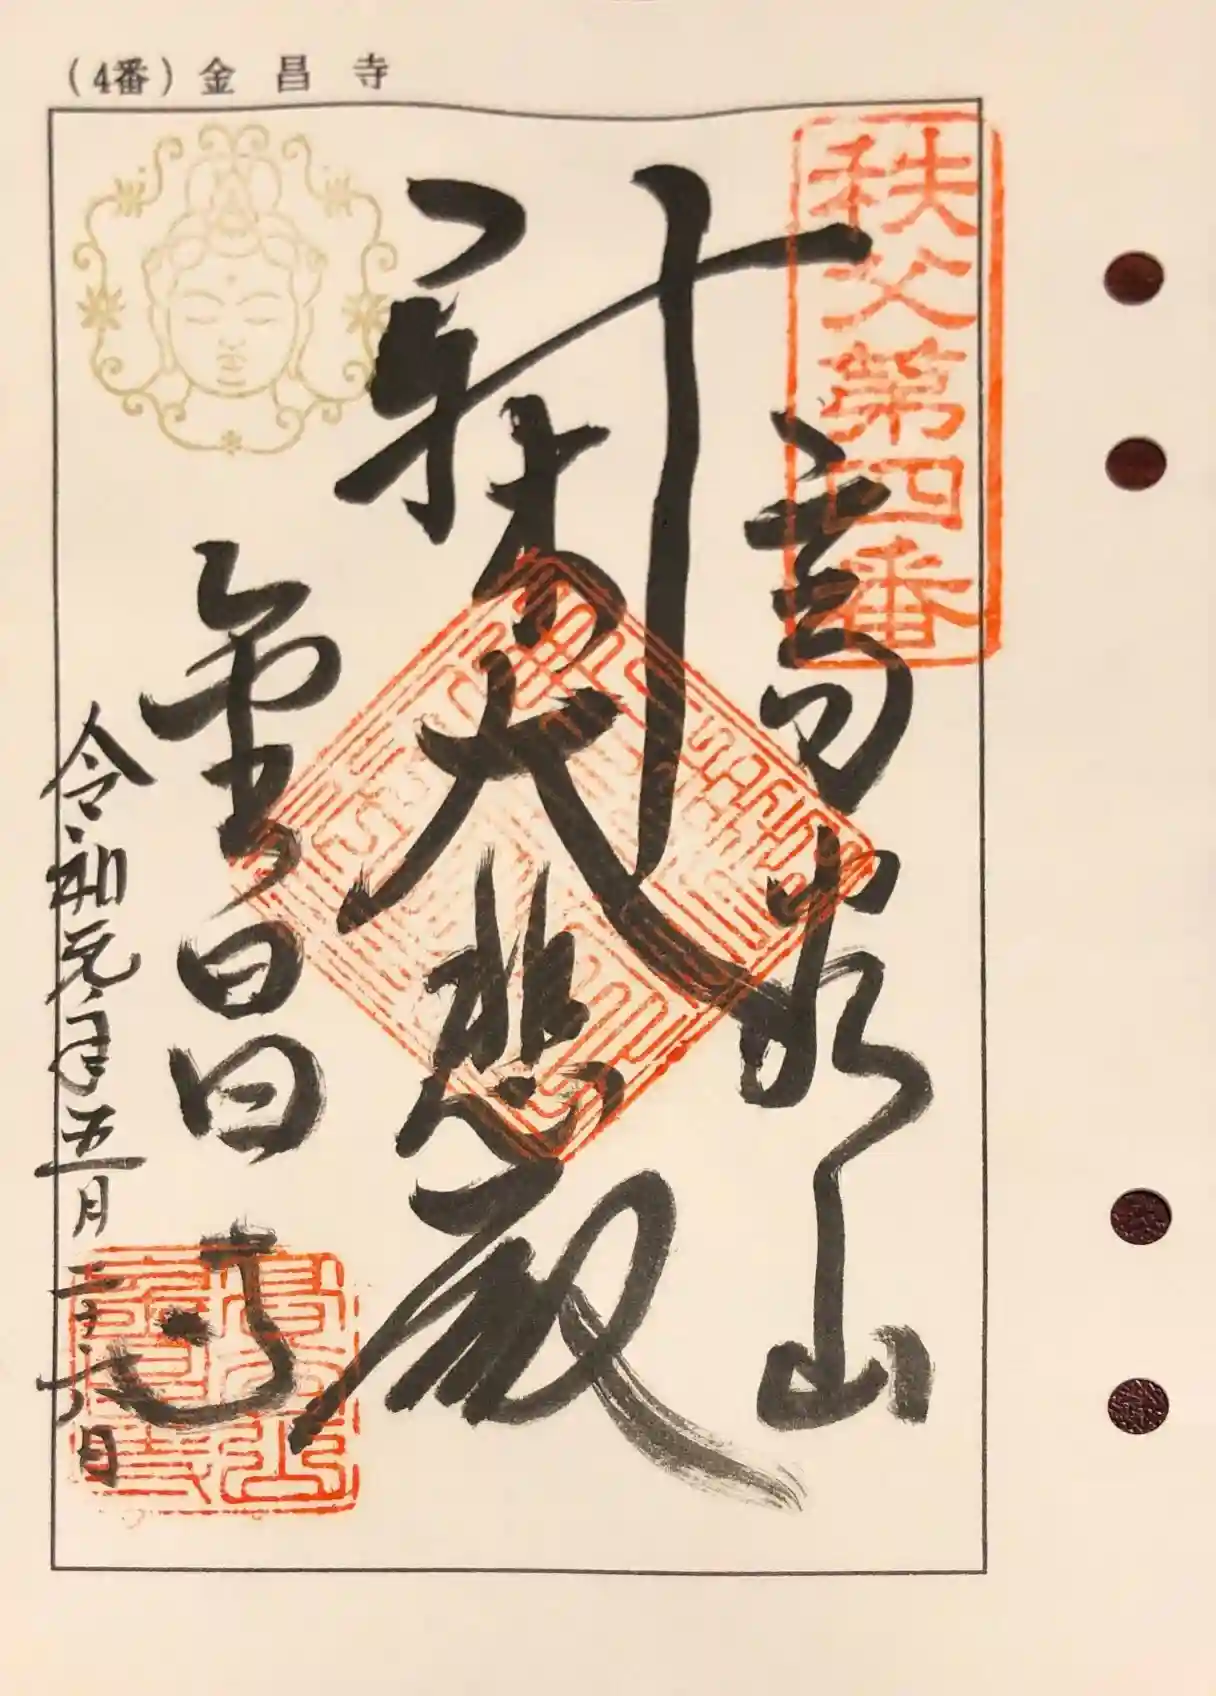 (4番)金昌寺
秩父第四番
高谷山
大悲殿
金昌寺
令和元年五月二十六日